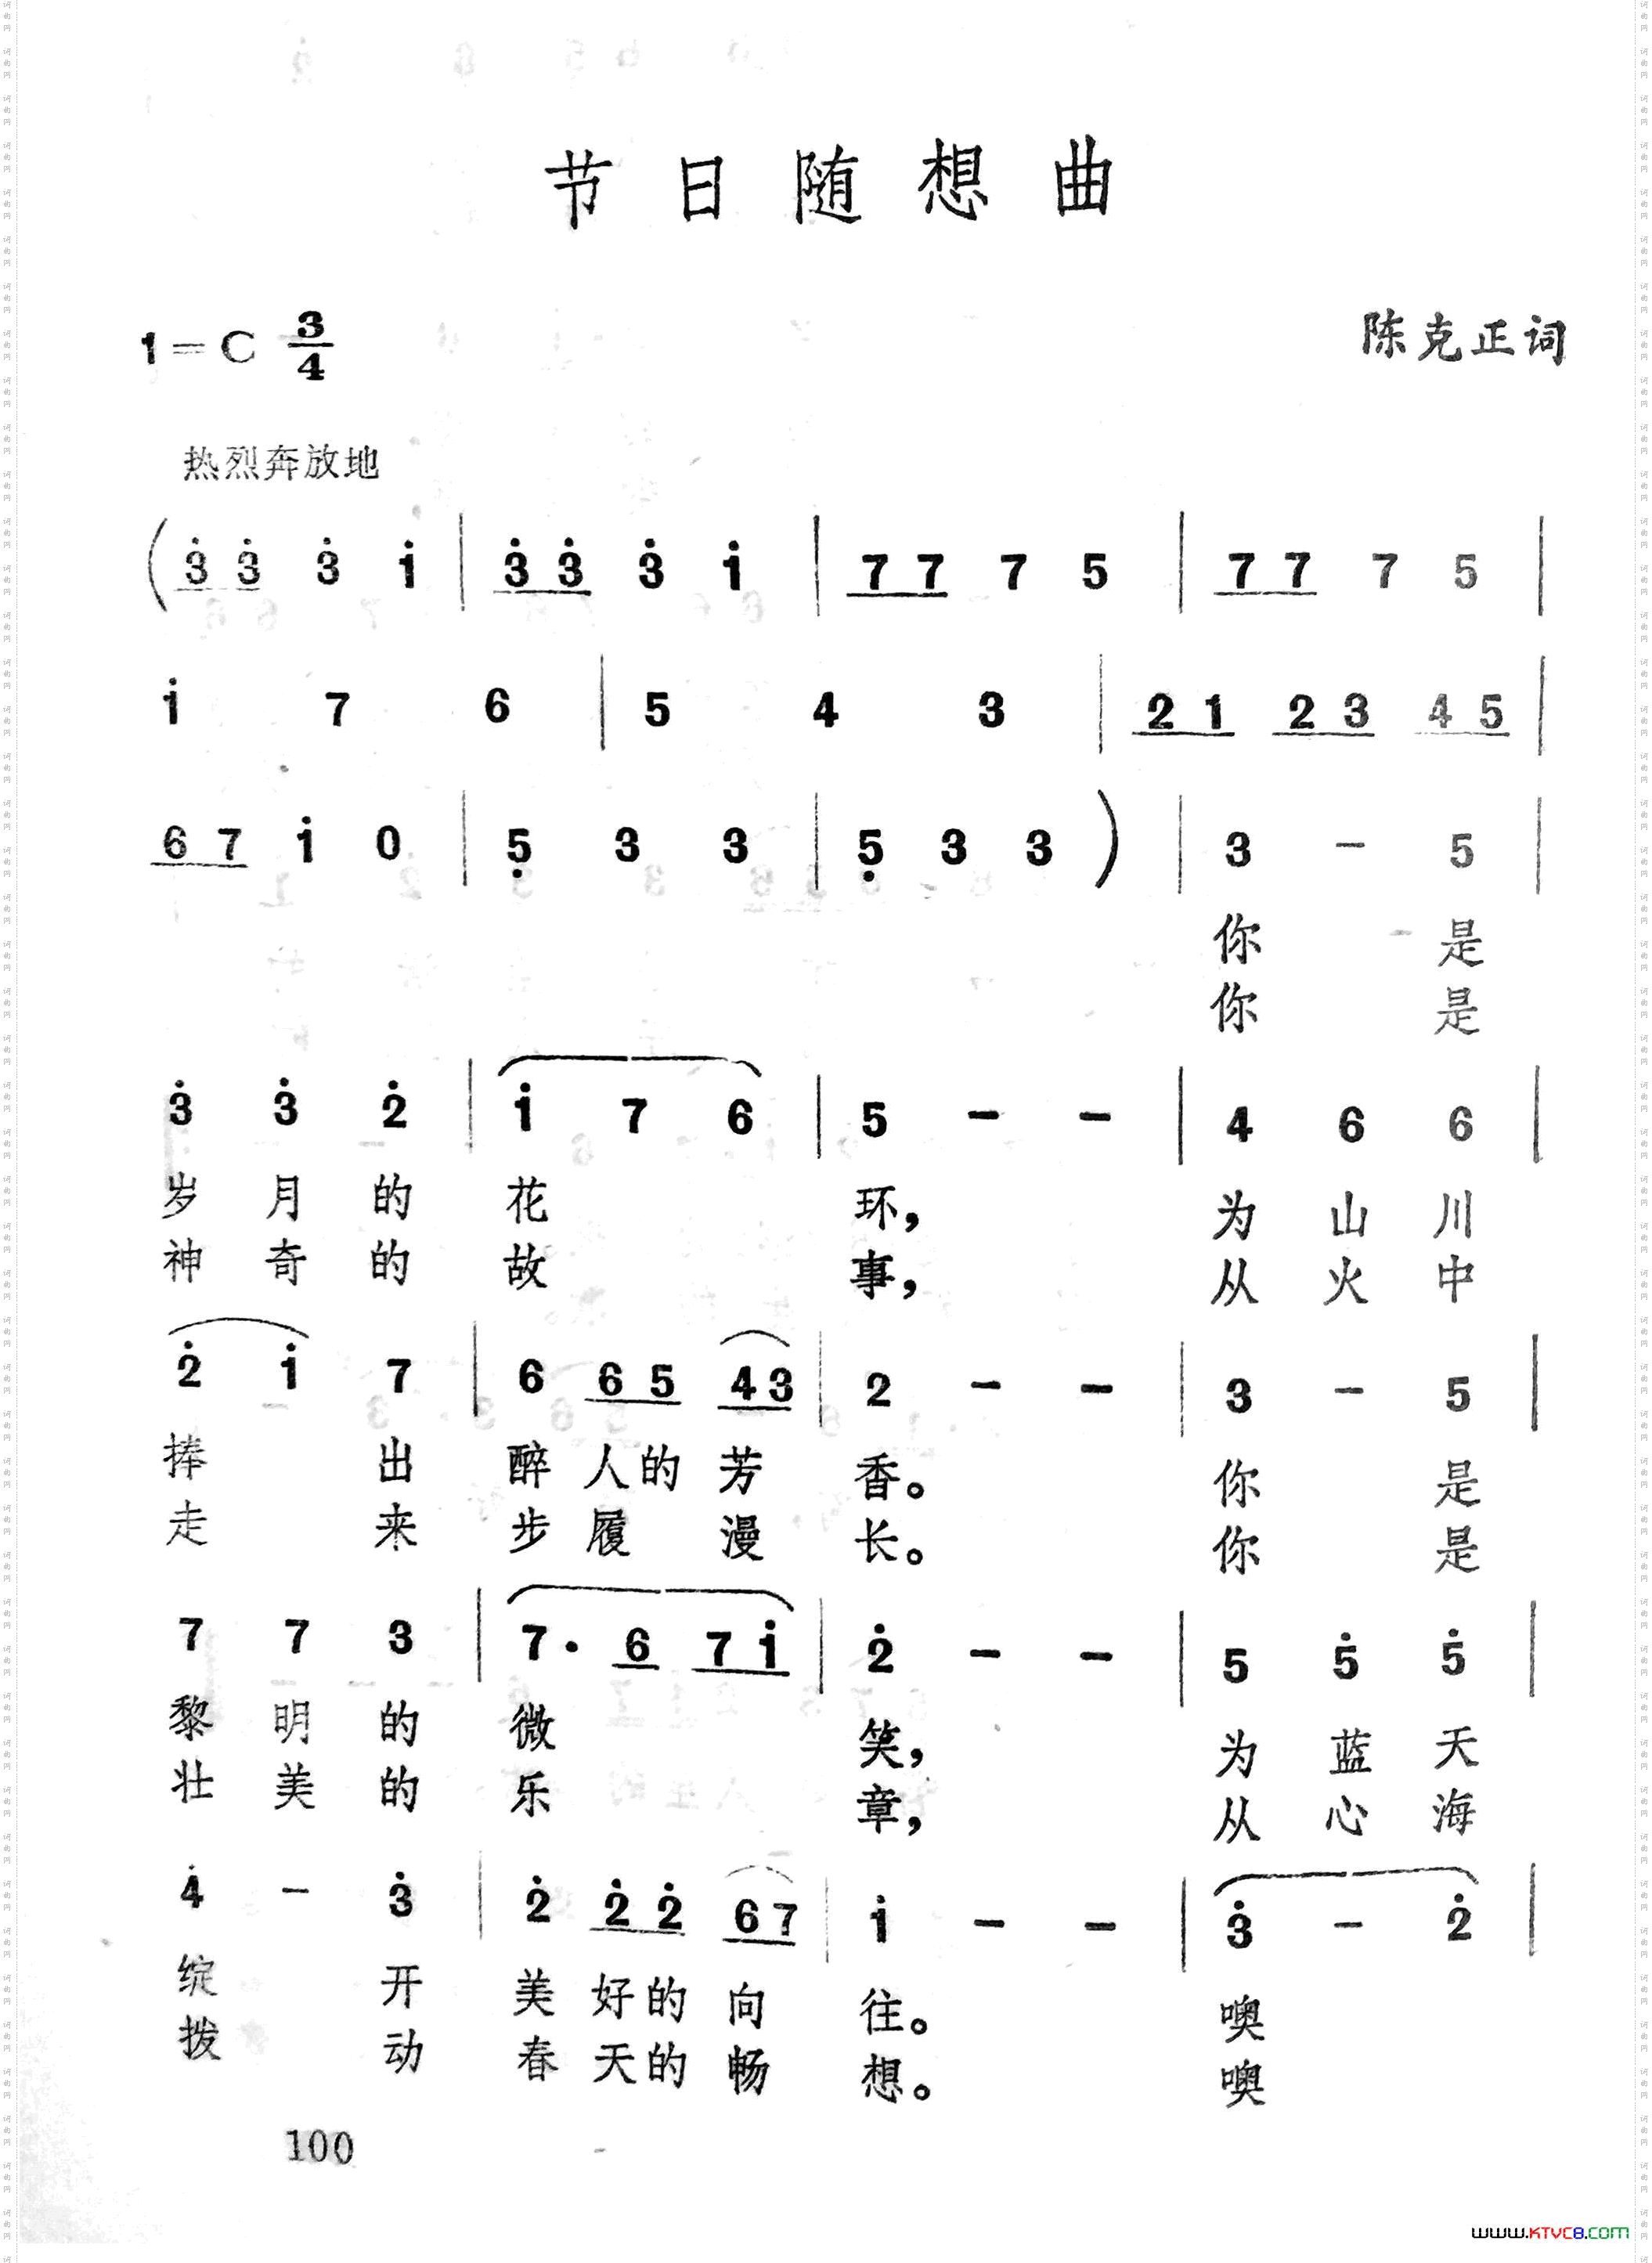 节日随想曲
1=C 3/4
陈克正词
热烈奔放地
(3̇3̇ 3̇ 1̇ | 3̇3̇ 3̇ 1̇ | 77 7 5 | 77 7 5 |
1̇ 7 6 | 5 4 3 | 21 23 45 |
67 1̇ 0 | 5̣ 3 3 | 5̣ 3 3) | 3 - 5 |
你 是
你 是
3̇ 3̇ 2̇ | 1̇ 7 6 | 5 - - | 4 6 6 |
岁 月 的 花 环, 为 山 川
神 奇 的 故 事, 从 火 中
2̇ 1̇ 7 | 6 65 43 | 2 - - | 3 - 5 |
捧 出 醉 人的 芳 香。 你 是
走 来 步 履 漫 长。 你 是
7 7 3 | 7· 6 71̇ | 2̇ - - | 5 5̇ 5̇ |
黎 明 的 微 笑, 为 蓝 天
壮 美 的 乐 章, 从 心 海
4̇ - 3̇ | 2̇ 2̇2̇ 67 | 1̇ - - | 3̇ - 2̇ |
绽 开 美 好的 向 往。 噢
拨 动 春 天的 畅 想。 噢
100
www.KTVC8.com